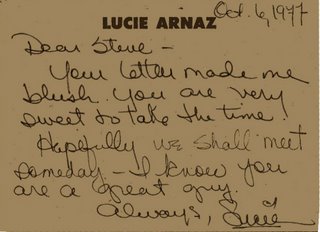 LUCIE ARNAZ
Oct. 6, 1977
Dear Steve -
Your letter made me
blush. You are very
sweet to take the time!
Hopefully we shall meet
someday - I know you
are a great guy.
Always, Lucie